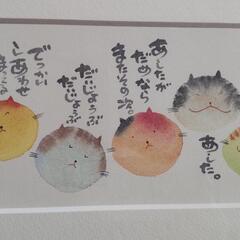 あしたが
だめなら
またその次。
あした。
だいじょうぶ
だいじょうぶ
でっかい
しあわせ
まってる。